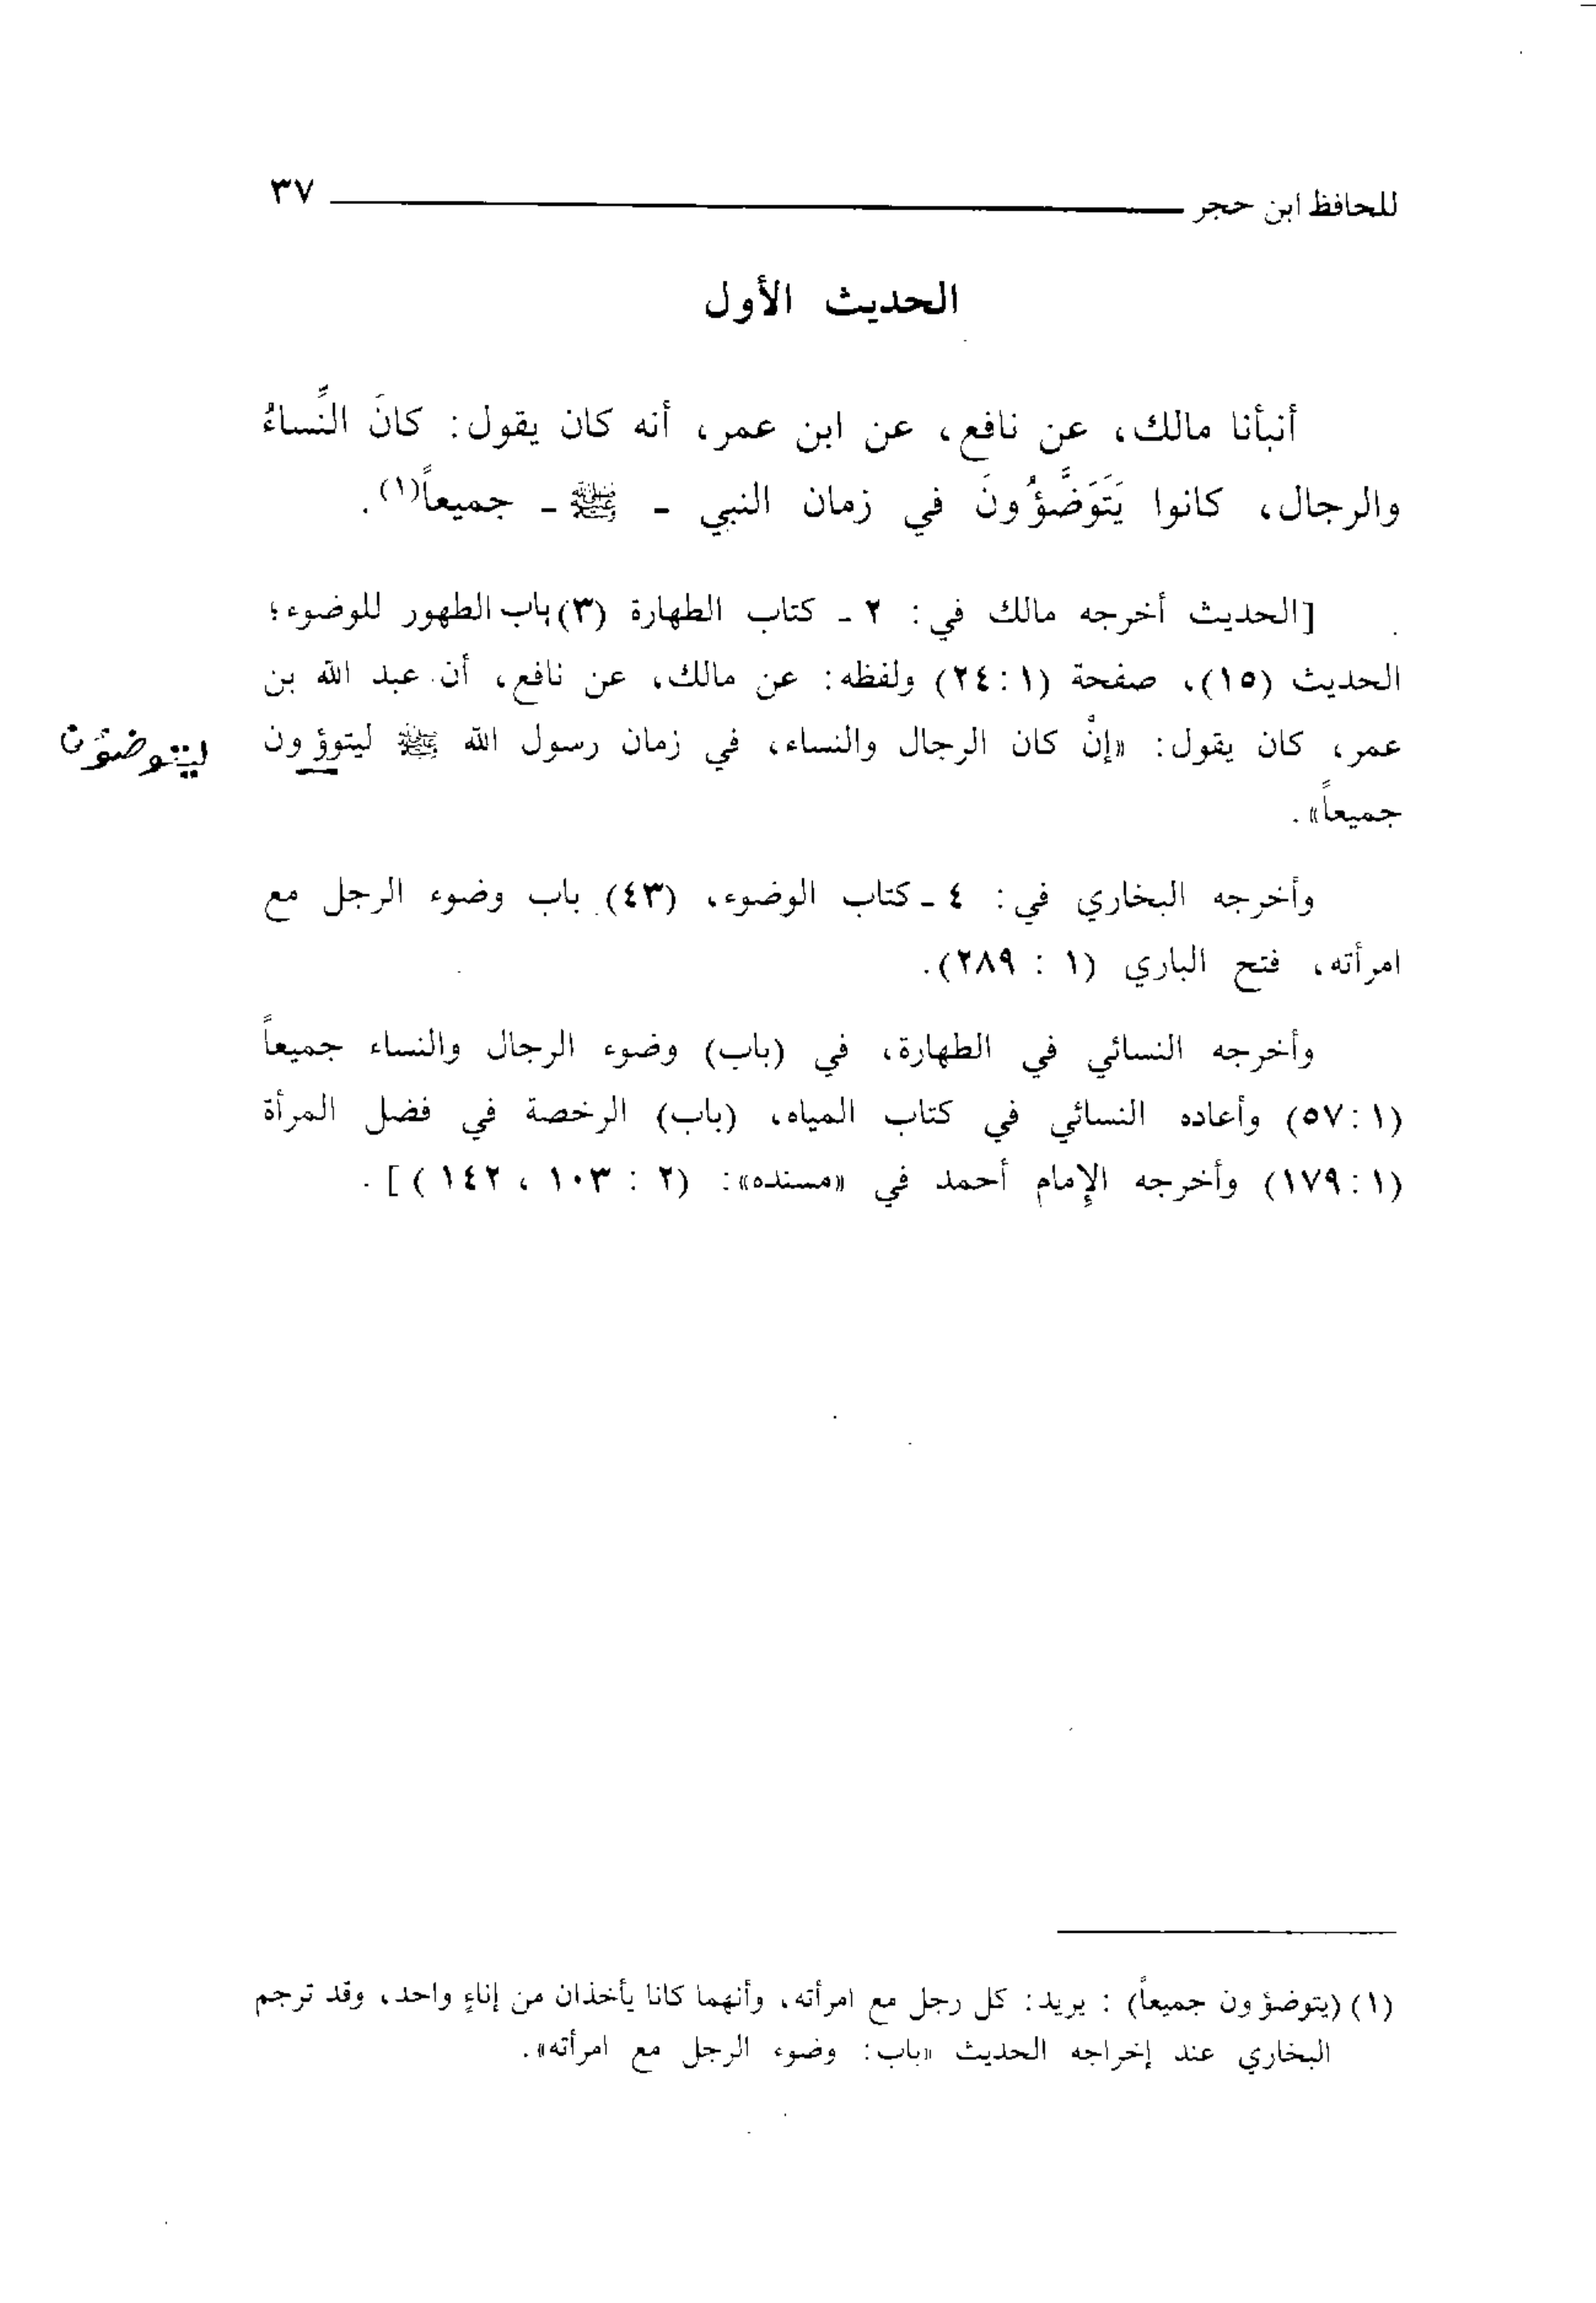 للحافظ ابن حجر ٣٧
الحديث الأول
أنبأنا مالك، عن نافع، عن ابن عمر، أنه كان يقول: كانَ النِّساءُ
والرجال، كانوا يَتَوَضَّؤُونَ في زمان النبي - ﷺ - جميعاً(١).
[الحديث أخرجه مالك في: ٢ - كتاب الطهارة (٣) باب الطهور للوضوء؛
الحديث (١٥)، صفحة (١:٢٤) ولفظه: عن مالك، عن نافع، أن عبد الله بن
عمر، كان يقول: «إنْ كان الرجال والنساء، في زمان رسول الله ﷺ ليتوؤون
ليتوضؤن
جميعاً».
وأخرجه البخاري في: ٤ - كتاب الوضوء، (٤٣) باب وضوء الرجل مع
امرأته، فتح الباري (١ : ٢٨٩).
وأخرجه النسائي في الطهارة، في (باب) وضوء الرجال والنساء جميعاً
(١:٥٧) وأعاده النسائي في كتاب المياه، (باب) الرخصة في فضل المرأة
(١:١٧٩) وأخرجه الإمام أحمد في «مسنده»: (٢ : ١٠٣ ، ١٤٢ )] .
(١) (يتوضؤون جميعاً) : يريد: كل رجل مع امرأته، وأنهما كانا يأخذان من إناءٍ واحد، وقد ترجم
البخاري عند إخراجه الحديث «باب: وضوء الرجل مع امرأته».